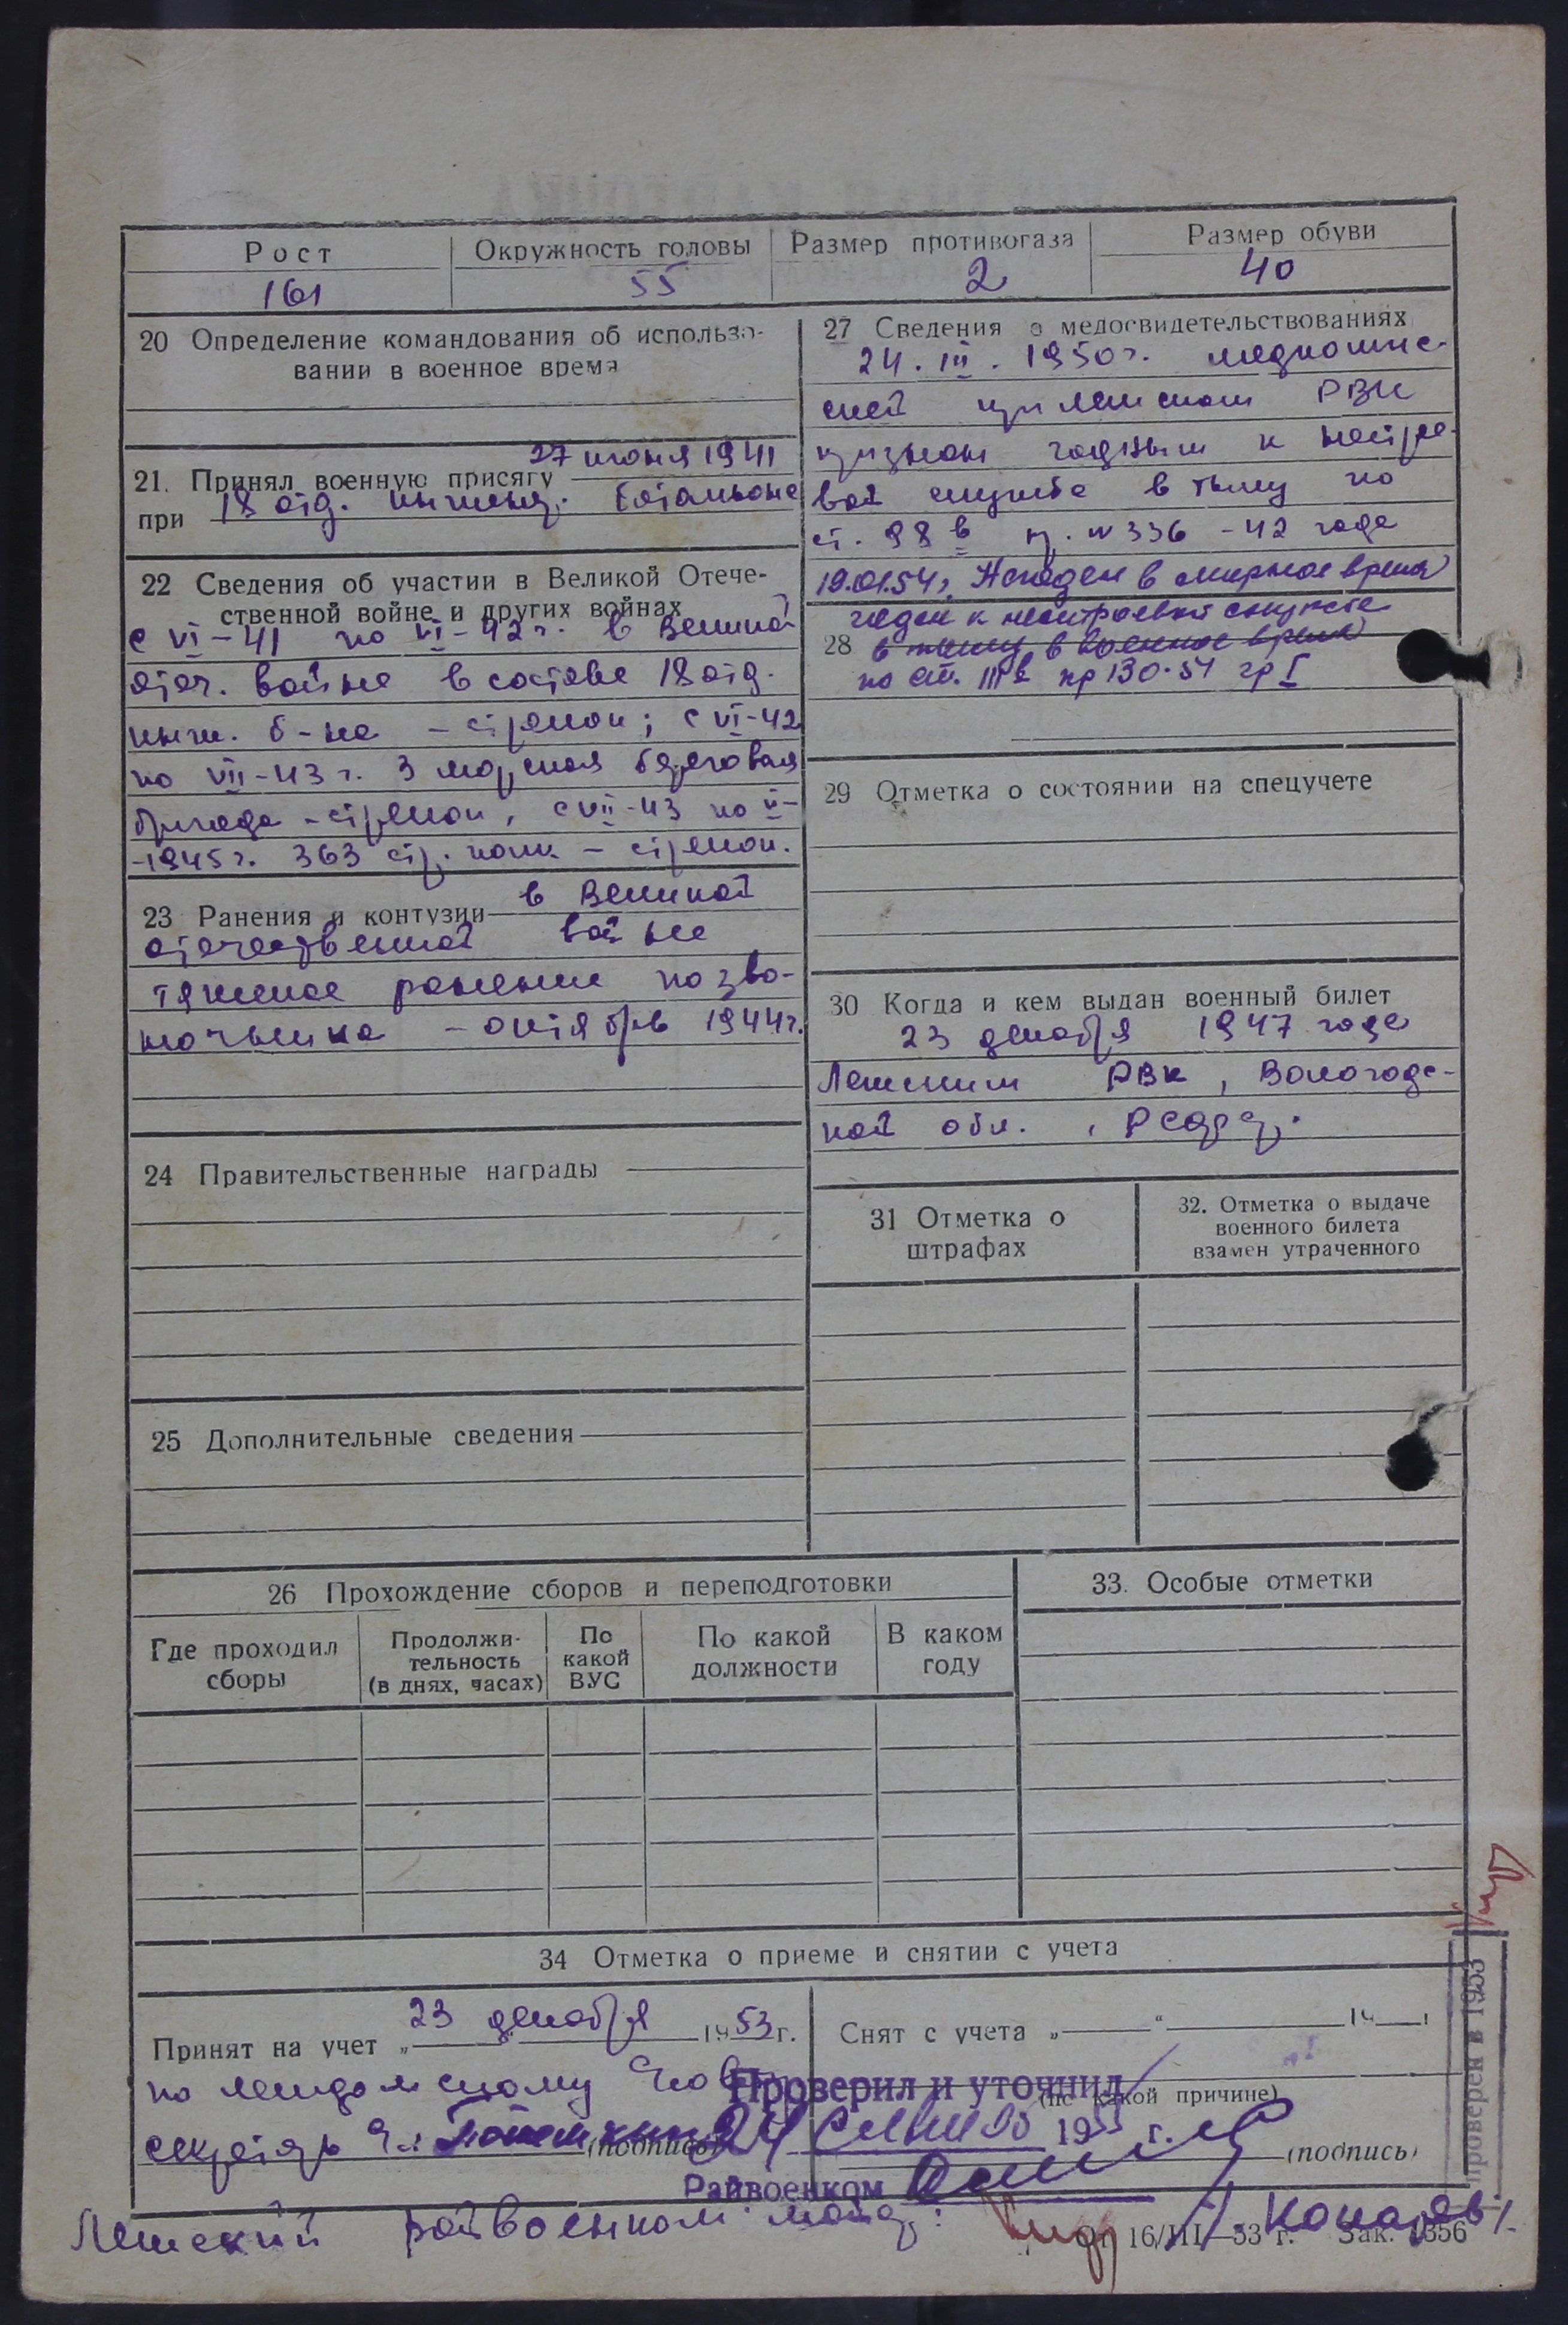 Рост Окружность головы Размер противогаза Размер обуви
161 55 2 40
20 Определение командования об использо-
вании в военное время
21. Принял военную присягу 27 июня 1941
при 18 отд. инженер. батальоне
22 Сведения об участии в Великой Отече-
ственной войне и других войнах
с VI-41 по VI-42 г. в Великой
отеч. войне в составе 18 отд.
инж. б-на - стрелок; с VI-42
по VII-43 г. 3 морская береговая
бригада - стрелок, с VII-43 по V-
-1945 г. 363 стр. полк - стрелок.
23 Ранения и контузии в Великой
отечественной войне
тяжелое ранение позво-
ночника - октябрь 1944 г.
24 Правительственные награды
25 Дополнительные сведения
27 Сведения о медосвидетельствованиях
24. III. 1950 г. медкомис-
сией при Лежском РВК
признан годным к нестрое-
вой службе в тылу по
ст. 98 в пр. № 336 - 42 года
19.01.54 г. Негоден в мирное время
годен к нестроевой службе
28 в тылу в военное время
по ст. пр 130-51 гр I
29 Отметка о состоянии на спецучете
30 Когда и кем выдан военный билет
23 декабря 1947 года
Лежским РВК, Вологодс-
кой обл., РСФСР.
31 Отметка о
штрафах
32. Отметка о выдаче
военного билета
взамен утраченного
26 Прохождение сборов и переподготовки
Где проходил
сборы
Продолжи-
тельность
(в днях, часах)
По
какой
ВУС
По какой
должности
В каком
году
33. Особые отметки
34 Отметка о приеме и снятии с учета
Принят на учет „23 декабря 1953 г.
по
секретарь (подпись)
Снят с учета „ “ 19 г.
(по какой причине)
(подпись)
Проверил и уточнил
24 195 г.
Райвоенком
Лежский райвоенком майор: /Кокарев/
От 16/III—53 г. Зак. 1356
проверен в 1953